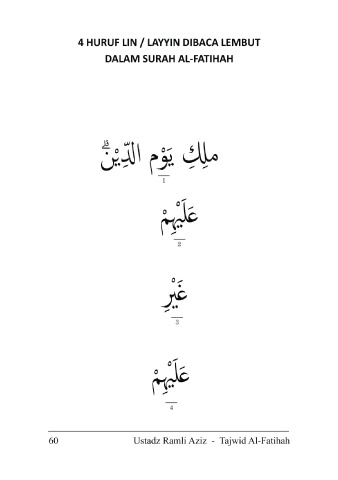 4 HURUF LIN / LAYYIN DIBACA LEMBUT
DALAM SURAH AL-FATIHAH
مٰلِكِ يَوْمِ الدِّيْنِۗ
1
عَلَيْهِمْ
2
غَيْرِ
3
عَلَيْهِمْ
4
60 Ustadz Ramli Aziz - Tajwid Al-Fatihah